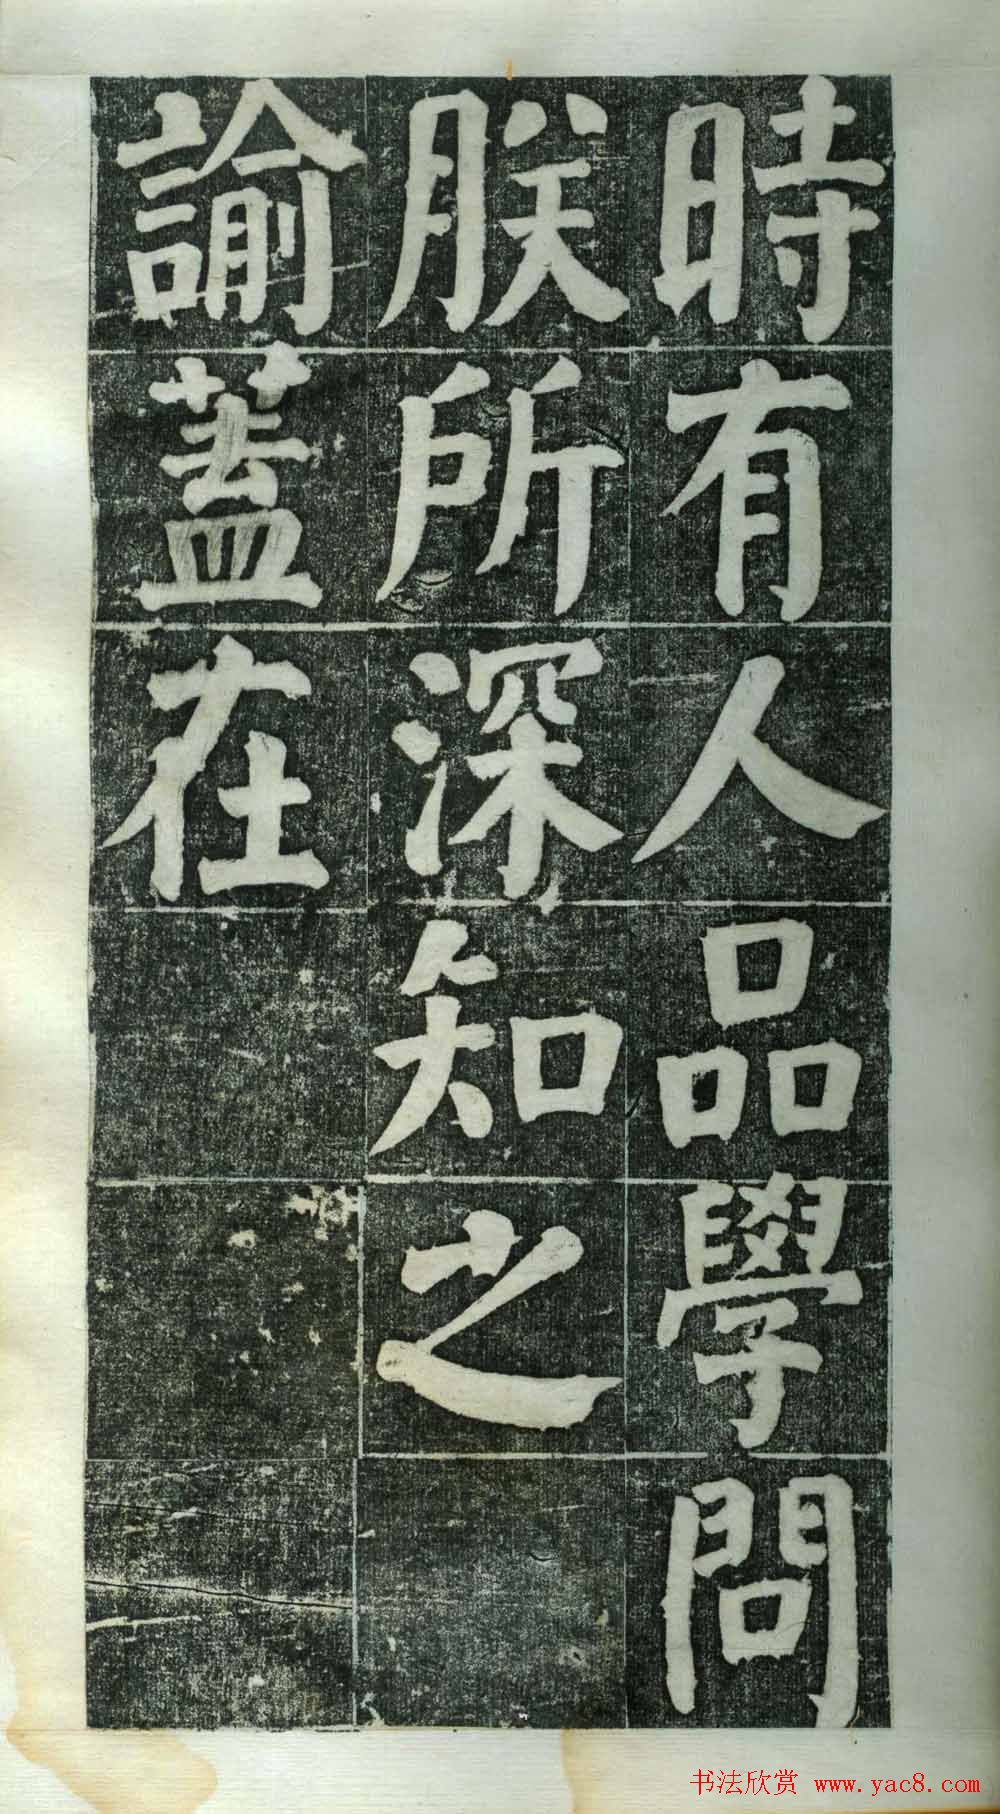 時有人品學問
朕所深知之
諭蓋在
书法欣赏 www.yac8.com